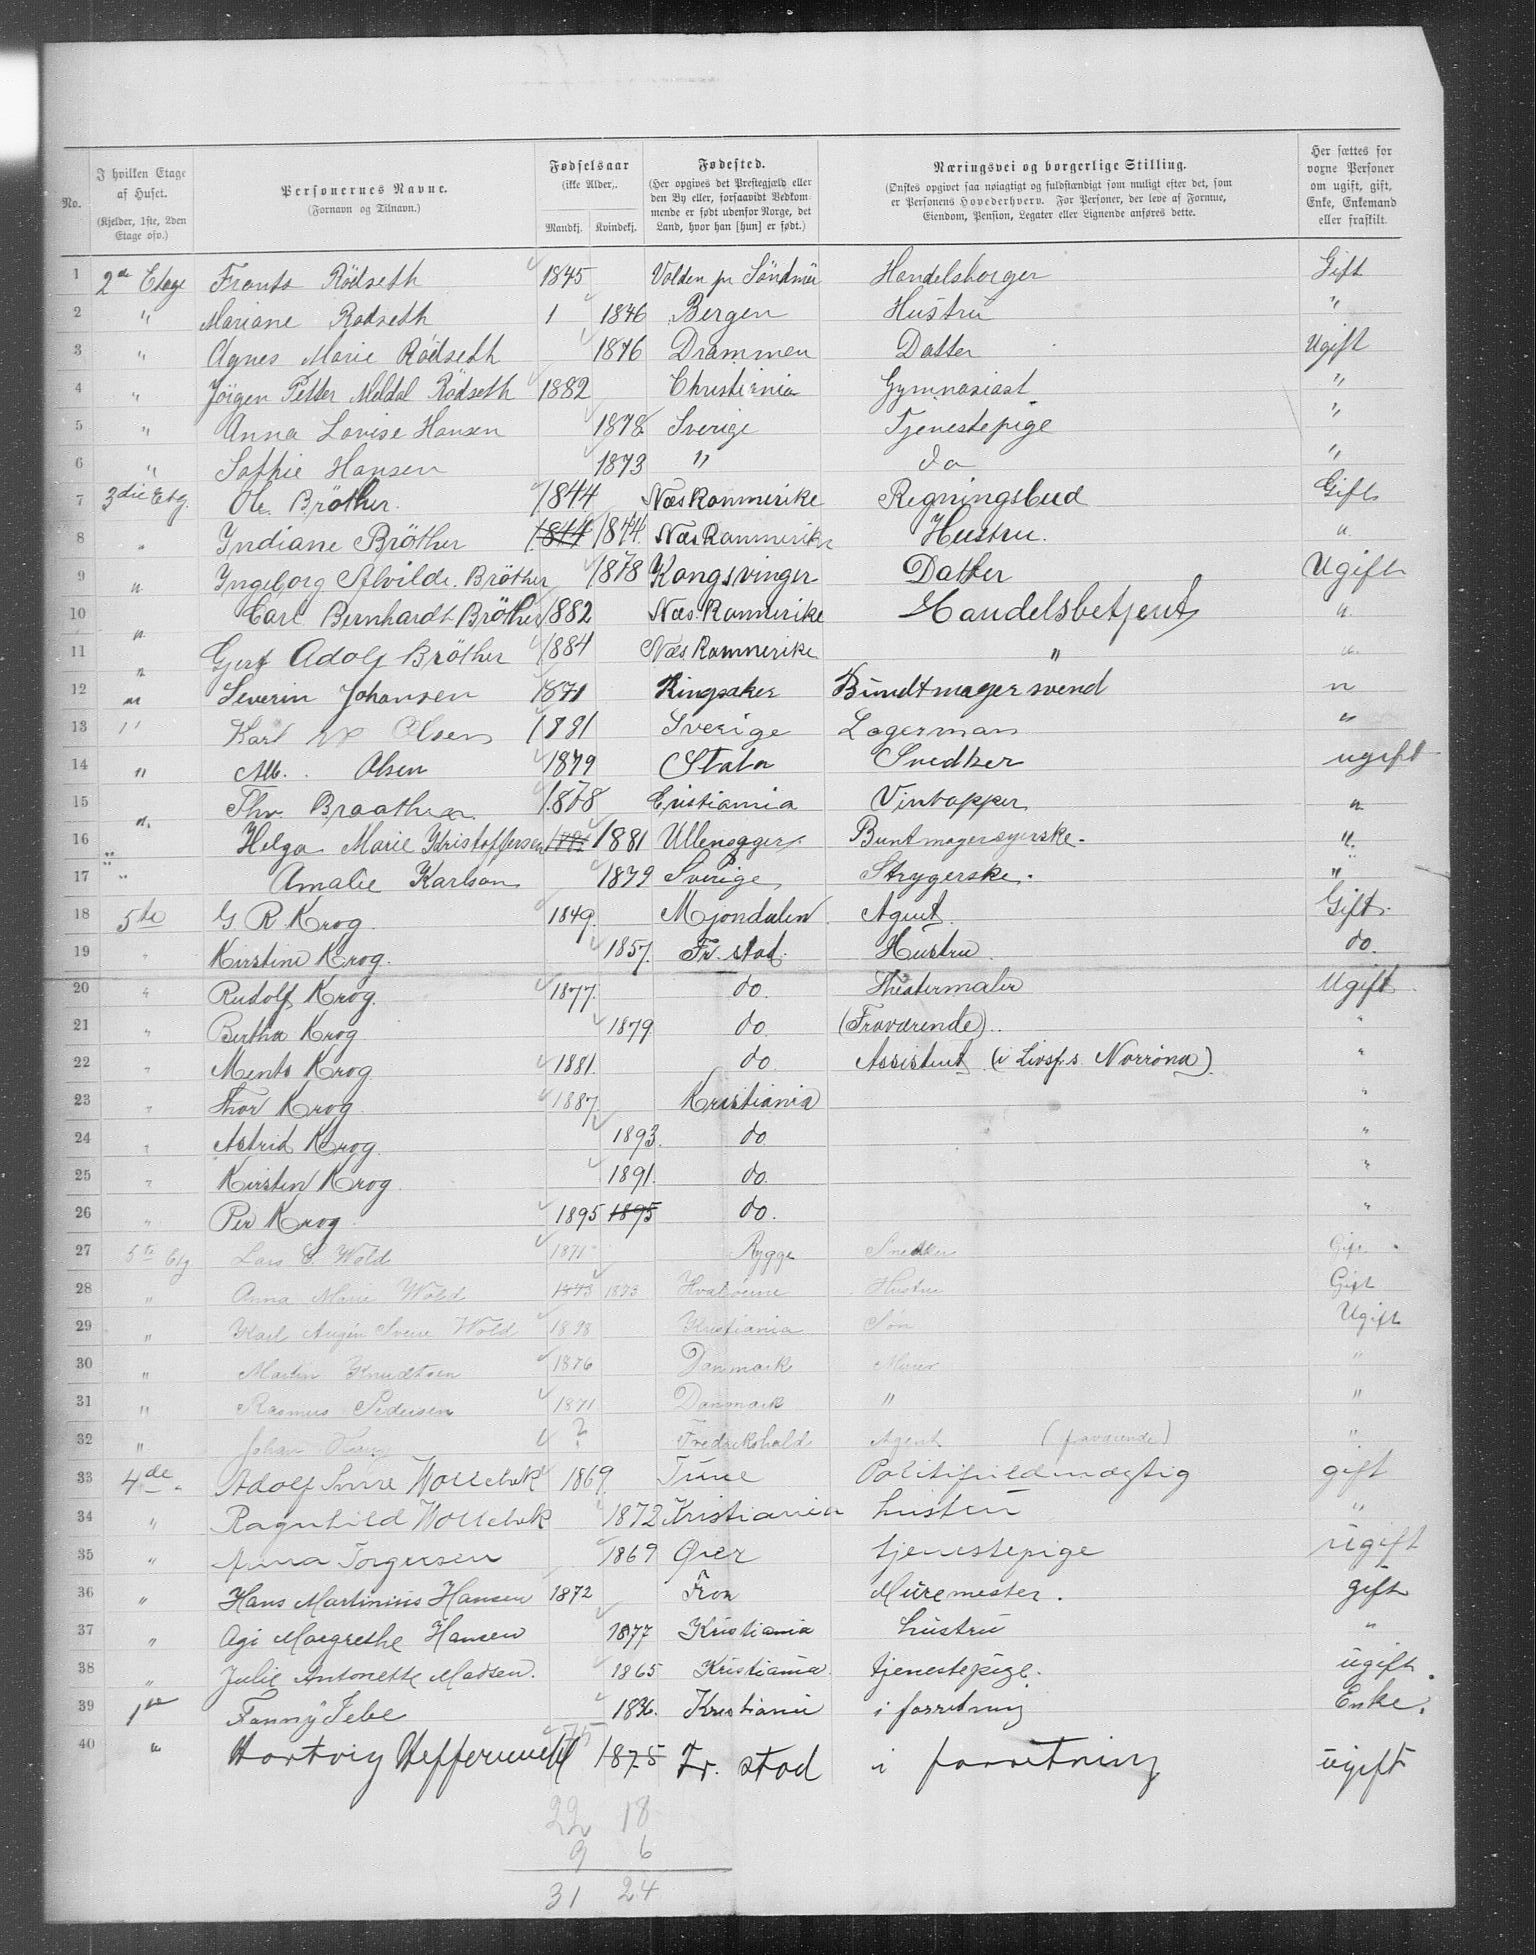 No. | I hvilken Etage af Huset. (Kjelder, 1ste, 2den Etage osv.) | Personernes Navne. (Fornavn og Tilnavn.) | Fødselsaar (ikke Alder). Mandkj. Kvindekj. | Fødested. (Her opgives det Prestegjæld eller den By eller, forsaavidt Vedkommende er født udenfor Norge, det Land, hvor han [hun] er født.) | Næringsvei og borgerlige Stilling. (Ønskes opgivet saa nøiagtigt og fuldstændigt som muligt efter det, som er Personens Hovederhverv. For Personer, der leve af Formue, Eiendom, Pension, Legater eller Lignende anføres dette. | Her sættes for voxne Personer om ugift, gift, Enke, Enkemand eller fraskilt.
1 2de Etage Frants Rödseth 1845 Volden pr Söndmör Handelsborger Gift
2 " Mariane Rödseth 1 1846 Bergen Hustru "
3 " Agnes Marie Rödseth 1876 Drammen Datter Ugift
4 " Jörgen Petter Meldal Rödseth 1882 Christiania Gymnasiast "
5 " Anna Lovise Hansen 1878 Sverige Tjenestepige "
6 " Soffie Hansen 1873 " do "
7 3die Etg. Ole Bröther. 1844 Næs Rommerike Regningsbud Gift
8 " Indiane Bröther 1844 1844. Næs Rommerike Hustru. "
9 " Ingeborg Alvilde Bröther 1878 Kongsvinger Datter Ugift
10 " Carl Bernhardt Bröther 1882 Næs Rommerike Handelsbetjent "
11 " Adolf Bröther 1884 Næs Rommerike " "
12 " Severin Johansen 1871 Ringsaker Bundtmagersvend "
13 " Karl Olsen 1881 Sverige Lagerman "
14 " Alb. Olsen 1879 Snedker ugift
15 " Thv. Braathen 1878 Cristiania Vintapper "
16 " Helga Marie Kristoffersen 1881 Ullensager Buntmagersyerske. "
17 " Amalie Karlson 1879 Sverige Strygerske. "
18 5te G R Krog 1849. Mjondalen Agent. Gift.
19 " Kirstine Krog. 1857. Fr. stad. Hustru. do.
20 " Rudolf Krog. 1877. do. Theatermaler Ugift
21 " Bertha Krog 1879. do. (Fraværende) "
22 " Ments Krog 1881. do. Assistent (i Livsf.s. Norröna) "
23 " Thor Krog 1887. Kristiania "
24 " Astrid Krog. 1893. do "
25 " Kirsten Krog. 1891. do. "
26 " Per Krog. 1895 1895 do. "
27 5te Etg Lars E. Wold 1871 Rygge Snedker Gift
28 " Anna Marie Wold 1873 1873 Hvaløerne Hustru Gift
29 " Karl Wold 1898 Kristiania Søn Ugift
30 " Martin Knudtsen 1876 Danmark Murer "
31 " Rasmus Pedersen 1871 Danmark " "
32 " Johan ? Fredrikshald Agent (fraværende) "
33 4de Adolf 1869. Tune Politifuldmægtig gift
34 " Ragnhild 1872 Kristiania hustru "
35 " Anna Torgersen 1869 Øier tjenestepige ugift
36 " Hans Martinius Hansen 1872 Fron Muremester. gift
37 " Agi Margrethe Hansen 1877 Kristiania hustru "
38 " Julie Antonette Madsen. 1865 Kristiania tjenestepige. ugift.
39 1ste Fanny Jebe 1836. Kristiania i forretning Enke.
40 " Hartvig 75 1875 Fr. stad i forretning ugift
22 18
9 6
31 24